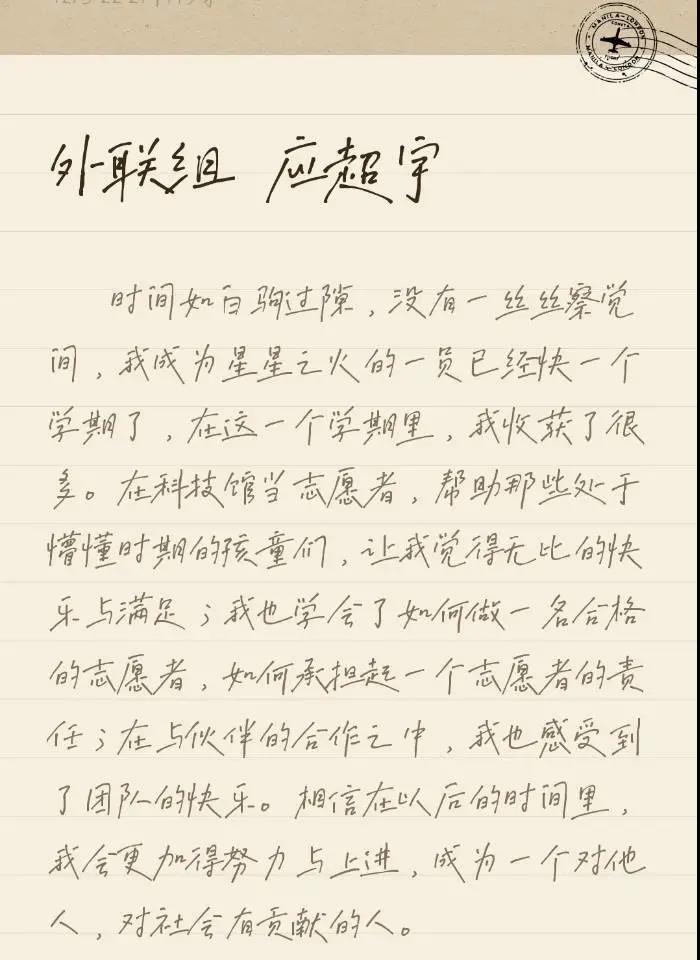 外联组 应超宇
时间如白驹过隙，没有一丝丝察觉
间，我成为星星之火的一员已经快一个
学期了，在这一个学期里，我收获了很
多。在科技馆当志愿者，帮助那些处于
懵懂时期的孩童们，让我觉得无比的快
乐与满足；我也学会了如何做一名合格
的志愿者，如何承担起一个志愿者的责
任；在与伙伴的合作之中，我也感受到
了团队的快乐。相信在以后的时间里，
我会更加得努力与上进，成为一个对他
人，对社会有贡献的人。
MANILA-LONDON
MANILA-LONDON